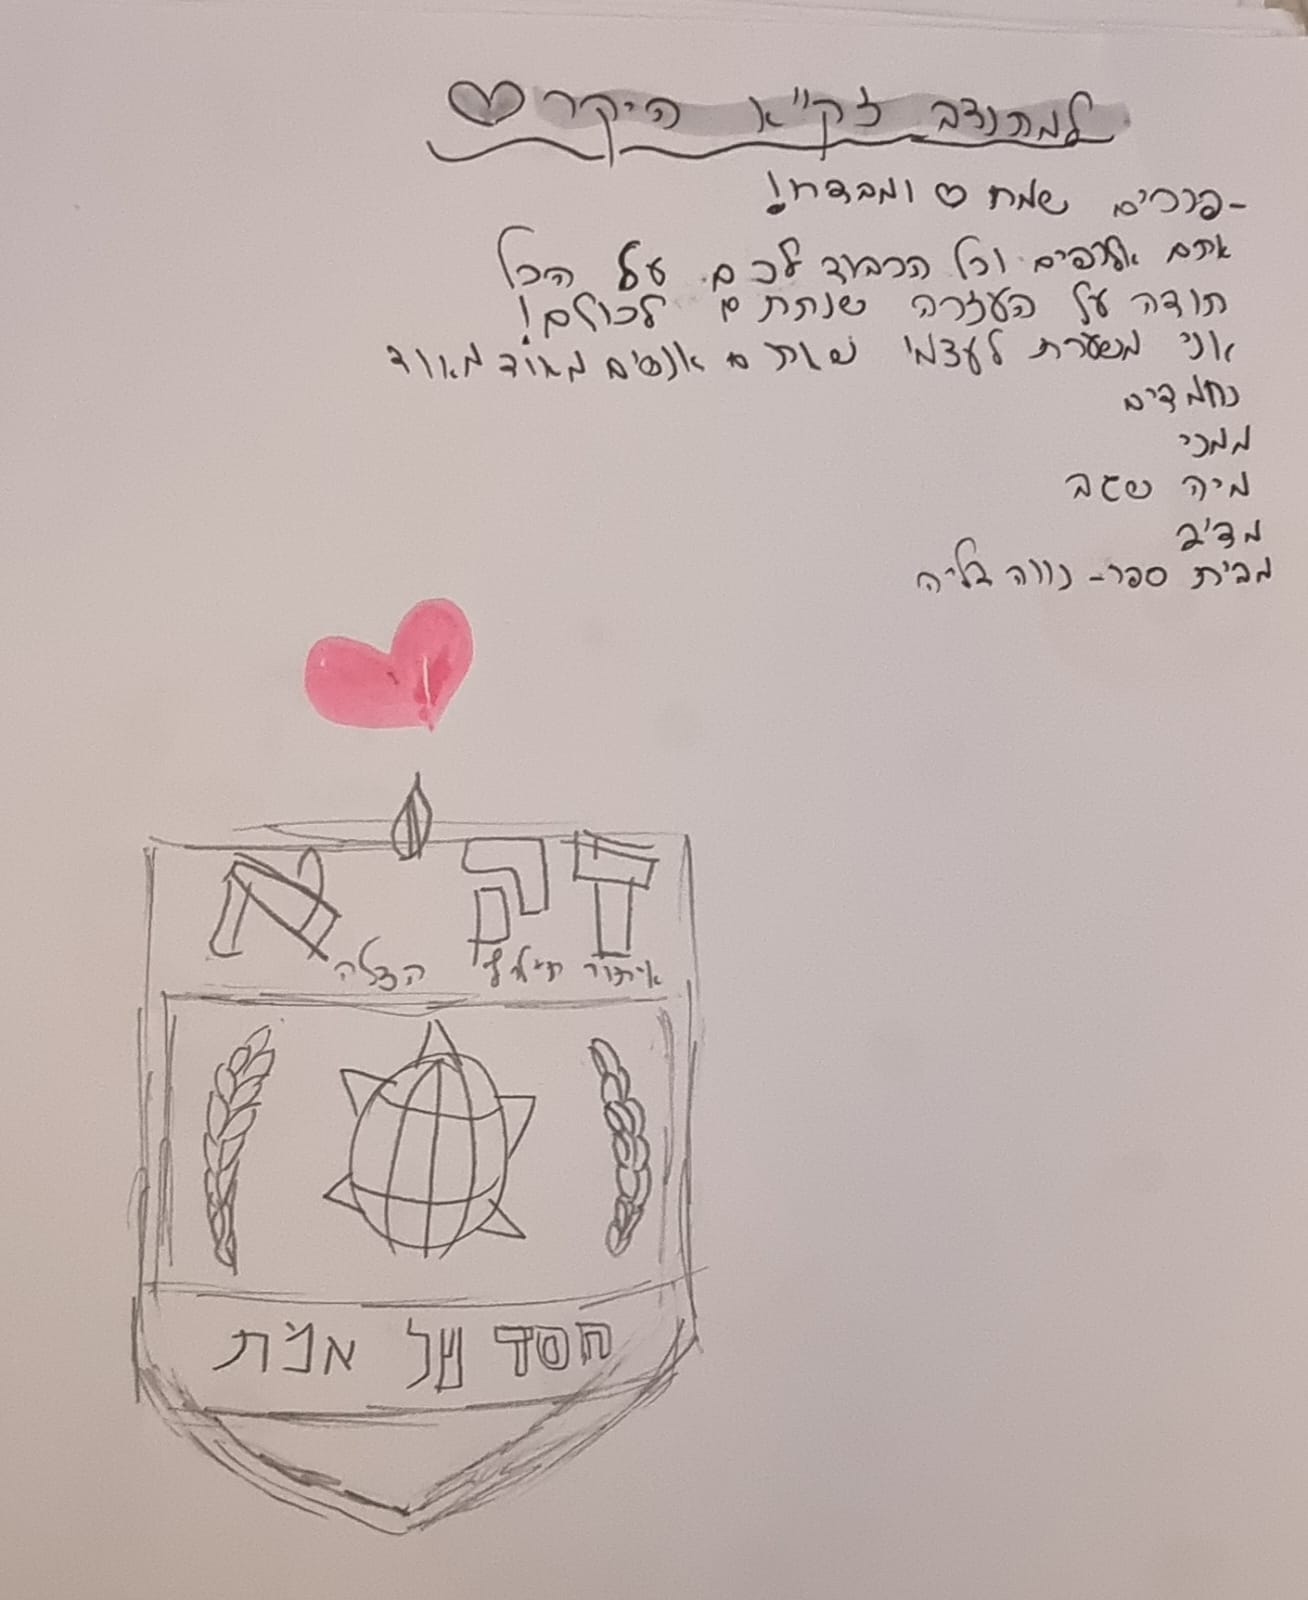 למתנדב זק"א היקר
-פורים שמח ומבדח!
אתם אלופים וכל הכבוד לכם על הכל
תודה על העזרה שנתתם לכולם!
אני משערת לעצמי שאתם אנשים מאוד מאוד
נחמדים
ממני
מיה שגב
מד'2
מבית ספר- נווה דליה
זק א
איתור חילוץ הצלה
חסד של אמת